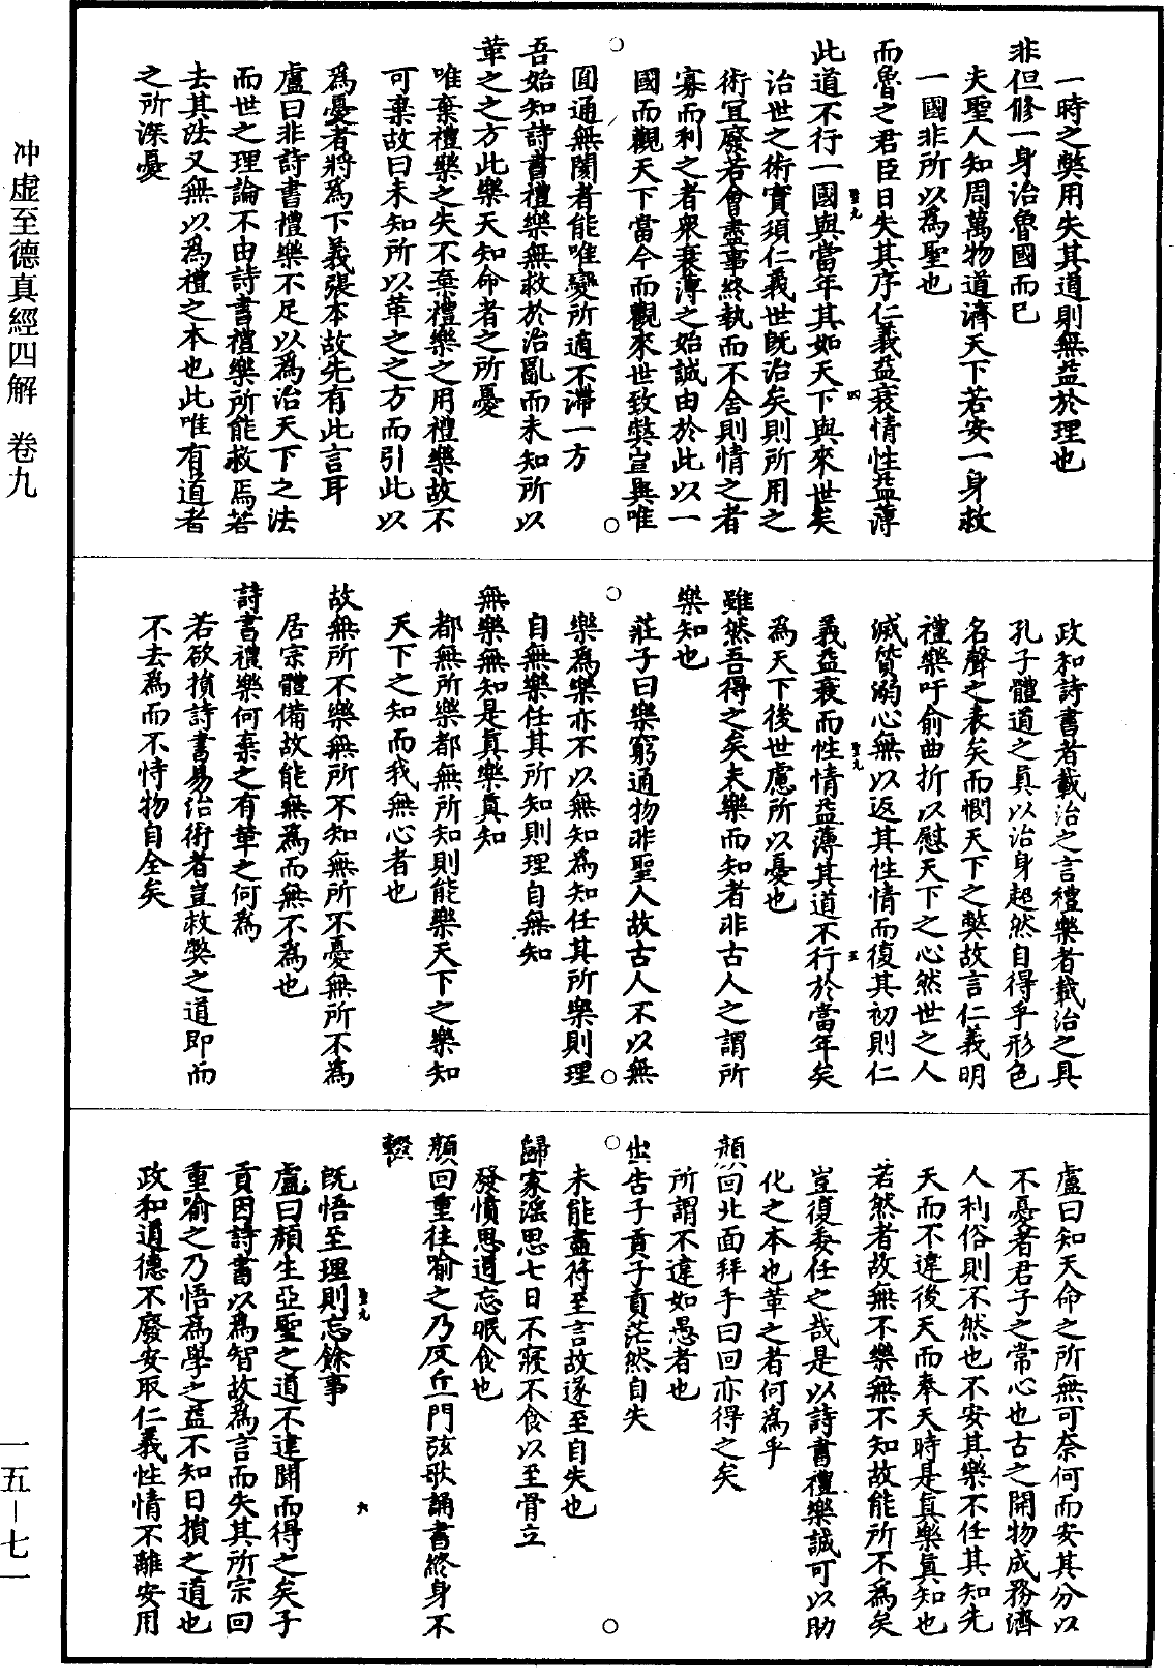 一時之弊用失其道則無益於理也
非但修一身治魯國而已
夫聖人知周萬物道濟天下若安一身救
一國非所以為聖也
而魯之君臣日失其序仁義益衰情性益薄
此道不行一國與當年其如天下與來世矣
治世之術實須仁義世既治矣則所用之
術宜廢若會盡事終執而不舍則情之者
寡而利之者衆衰薄之始誠由於此以一
國而觀天下當今而觀來世致弊豈異唯
圓通無閡者能唯變所適不滯一方
吾始知詩書禮樂無救於治亂而未知所以
革之之方此樂天知命者之所憂
唯棄禮樂之失不棄禮樂之用禮樂故不
可棄故曰未知所以革之之方而引此以
為憂者將為下義張本故先有此言耳
盧曰非詩書禮樂不足以為治天下之法
而世之理論不由詩書禮樂所能救焉若
去其法又無以為禮之本也此唯有道者
之所深憂
政和詩書者載治之言禮樂者載治之具
孔子體道之真以治身超然自得乎形色
名聲之表矣而憫天下之弊故言仁義明
禮樂吁俞曲折以慰天下之心然世之人
滅質溺心無以返其性情而復其初則仁
義益衰而性情益薄其道不行於當年矣
為天下後世慮所以憂也
雖然吾得之矣夫樂而知者非古人之謂所
樂知也
莊子曰樂窮通物非聖人故古人不以無
樂為樂亦不以無知為知任其所樂則理
自無樂任其所知則理自無知
無樂無知是真樂真知
都無所樂都無所知則能樂天下之樂知
天下之知而我無心者也
故無所不樂無所不知無所不憂無所不為
居宗體備故能無為而無不為也
詩書禮樂何棄之有革之何為
若欲損詩書易治術者豈救弊之道即而
不去為而不恃物自全矣
盧曰知天命之所無可奈何而安其分以
不憂者君子之常心也古之開物成務濟
人利俗則不然也不安其樂不任其知先
天而不違後天而奉天時是真樂真知也
若然者故無不樂無不知故能所不為矣
豈復委任之哉是以詩書禮樂誠可以助
化之本也革之者何為乎
顏回北面拜手曰回亦得之矣
所謂不違如愚者也
出告子貢子貢茫然自失
未能盡符至言故遂至自失也
歸家淫思七日不寢不食以至骨立
發憤思道忘眠食也
顏回重往喻之乃反丘門弦歌誦書終身不
輟
既悟至理則忘餘事
盧曰顏生亞聖之道不違聞而得之矣子
貢因詩書以為智故為言而失其所宗回
重喻之乃悟為學之益不知日損之道也
政和道德不廢安取仁義性情不離安用
冲虛至德真經四解 卷九
一五—七一